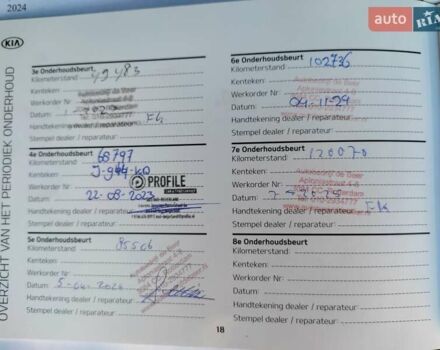 2024
auto
RIA
KIA
OVERZICHT VAN HET PERIODIEK ONDERHOUD
3e Onderhoudsbeurt
Kilometerstand : 49483
Kenteken:
Werkorder Nr :
Datum:
Handtekening dealer / reparateur:
Stempel dealer / reparateur:
4e Onderhoudsbeurt
Kilometerstand : 68797
Kenteken: J-944-KD
Werkorder Nr : PROFILE
Datum: 22-08-2023
Handtekening dealer
Stempel dealer / reparateur:
5e Onderhoudsbeurt
Kilometerstand : 85506
Kenteken:
Werkorder Nr :
Datum: 5-04-2024
Handtekening dealer / reparateur:
Stempel dealer / reparateur:
6e Onderhoudsbeurt
Kilometerstand : 102736
Kenteken: Autobedrijf de Boer
Werkorder Nr :
Datum:
Handtekening dealer / reparateur:
Stempel dealer / reparateur:
7e Onderhoudsbeurt
Kilometerstand : 120070
Kenteken: Autobedrijf de Boer
Werkorder Nr :
Datum:
Handtekening dealer / reparateur:
Stempel dealer / reparateur:
8e Onderhoudsbeurt
Kilometerstand :
Kenteken:
Werkorder Nr :
Datum:
Handtekening dealer / reparateur:
Stempel dealer / reparateur:
18